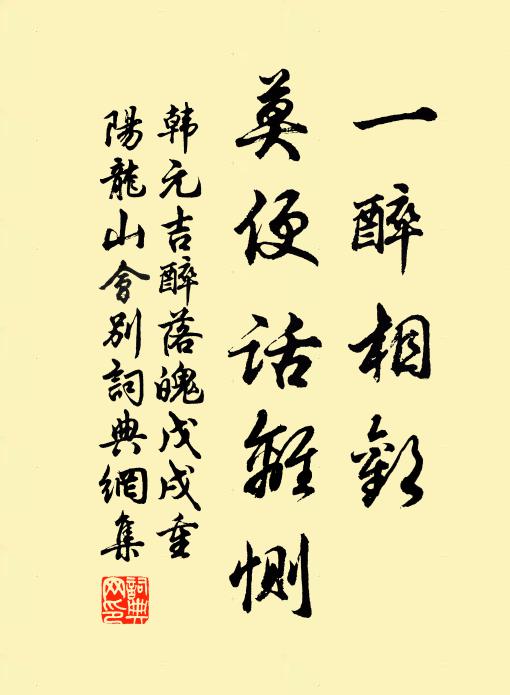 一醉相歡
莫便話離惻
韓元吉醉落魄戊戌重
陽龍山會別詞典網集
詞典
网印